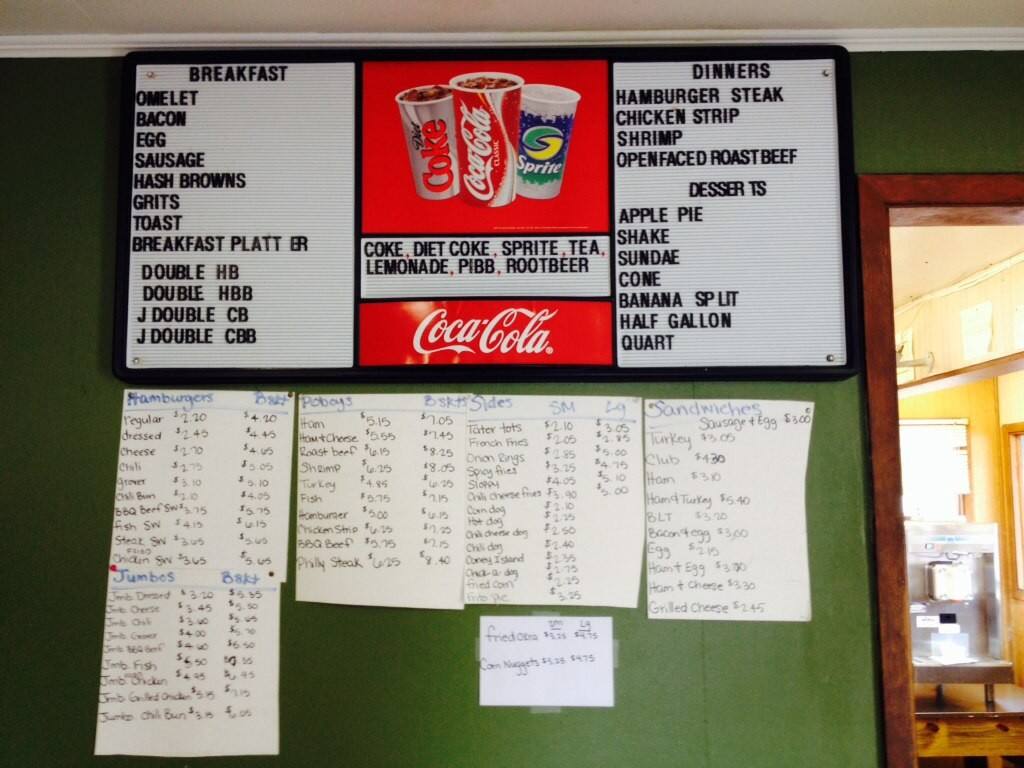 BREAKFAST
OMELET
BACON
EGG
SAUSAGE
HASH BROWNS
GRITS
TOAST
BREAKFAST PLATT ER
DOUBLE HB
DOUBLE HBB
J DOUBLE CB
J DOUBLE CBB
Diet Coke
Coca-Cola CLASSIC
Sprite
COKE, DIET COKE, SPRITE, TEA,
LEMONADE, PIBB, ROOTBEER
Coca-Cola
DINNERS
HAMBURGER STEAK
CHICKEN STRIP
SHRIMP
OPENFACED ROAST BEEF
DESSER TS
APPLE PIE
SHAKE
SUNDAE
CONE
BANANA SPLIT
HALF GALLON
QUART
Hamburgers Bskt
regular $2.20 $4.20
dressed $2.45 $4.45
Cheese $2.70 $4.65
Chili $2.75 $5.05
grover $3.10 $5.10
Chili Bun $2.10 $4.05
BBQ Beef SW $3.75 $5.75
fish SW $4.15 $6.15
Steak SW $3.65 $5.65
Chicken SW $3.65 $5.65
Jumbos Bskt
Jmb. Dressed $3.20 $5.35
Jmb Cheese $3.45 $5.50
Jmb Chili $3.60 $5.65
Jmb Grover $4.00 $5.70
Jmb BBQ Beef $4.60 $6.50
Jmb Fish
Jmb Chicken $4.95 $6.95
Jmb Grilled Chicken $5.15 $7.15
Jumbo Chili Bun $3.15 $6.05
Poboys Bskts
Ham $5.15 $7.05
Ham & Cheese $5.55 $7.45
Roast beef $6.15 $8.25
Shrimp $6.25 $8.05
Turkey $4.85 $6.25
Fish $5.75 $7.15
Hamburger $5.00 $6.15
Chicken Strip $6.25 $7.25
BBQ Beef $5.75 $7.15
Philly Steak $6.25 $8.40
Sides SM Lg
Tater tots $2.10 $3.05
French Fries $2.05 $2.85
Onion Rings $2.85 $5.00
Spicy fries $3.25 $4.75
Sloppy $4.05 $5.10
Chili cheese fries $3.90 $5.00
Corn dog $2.10
Hot dog $2.25
Chili cheese dog $2.50
Chili dog $2.40
Coney Island $2.35
Chick-a-dog $2.75
fried corn $2.25
Frito pie $3.25
Sandwiches
Sausage & Egg $3.00
Turkey $3.05
Club $4.30
Ham $3.10
Ham & Turkey $5.40
BLT $3.20
Bacon & egg $3.00
Egg $2.15
Ham & Egg
Ham & Cheese $3.30
Grilled Cheese $2.45
sm Lg
fried Okra $3.25 $4.75
Corn Nuggets $3.25 $4.75